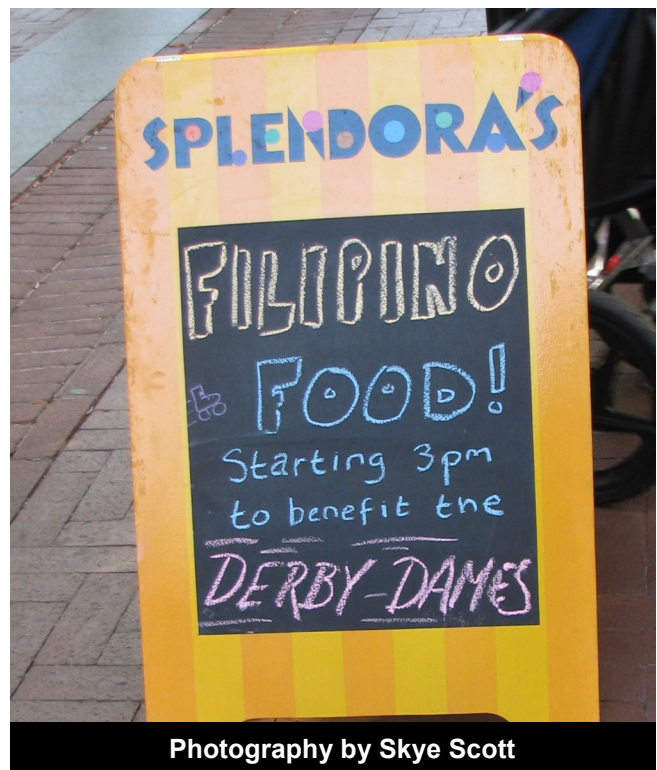 SPLENDORA'S
FILIPINO
FOOD!
Starting 3pm
to benefit the
DERBY DAMES
Photography by Skye Scott